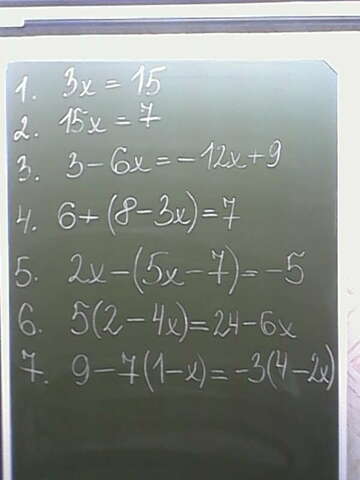 1. 3x = 15
2. 15x = 7
3. 3 - 6x = - 12x + 9
4. 6 + (8 - 3x) = 7
5. 2x - (5x - 7) = -5
6. 5(2 - 4x) = 24 - 6x
7. 9 - 7(1 - x) = -3(4 - 2x)